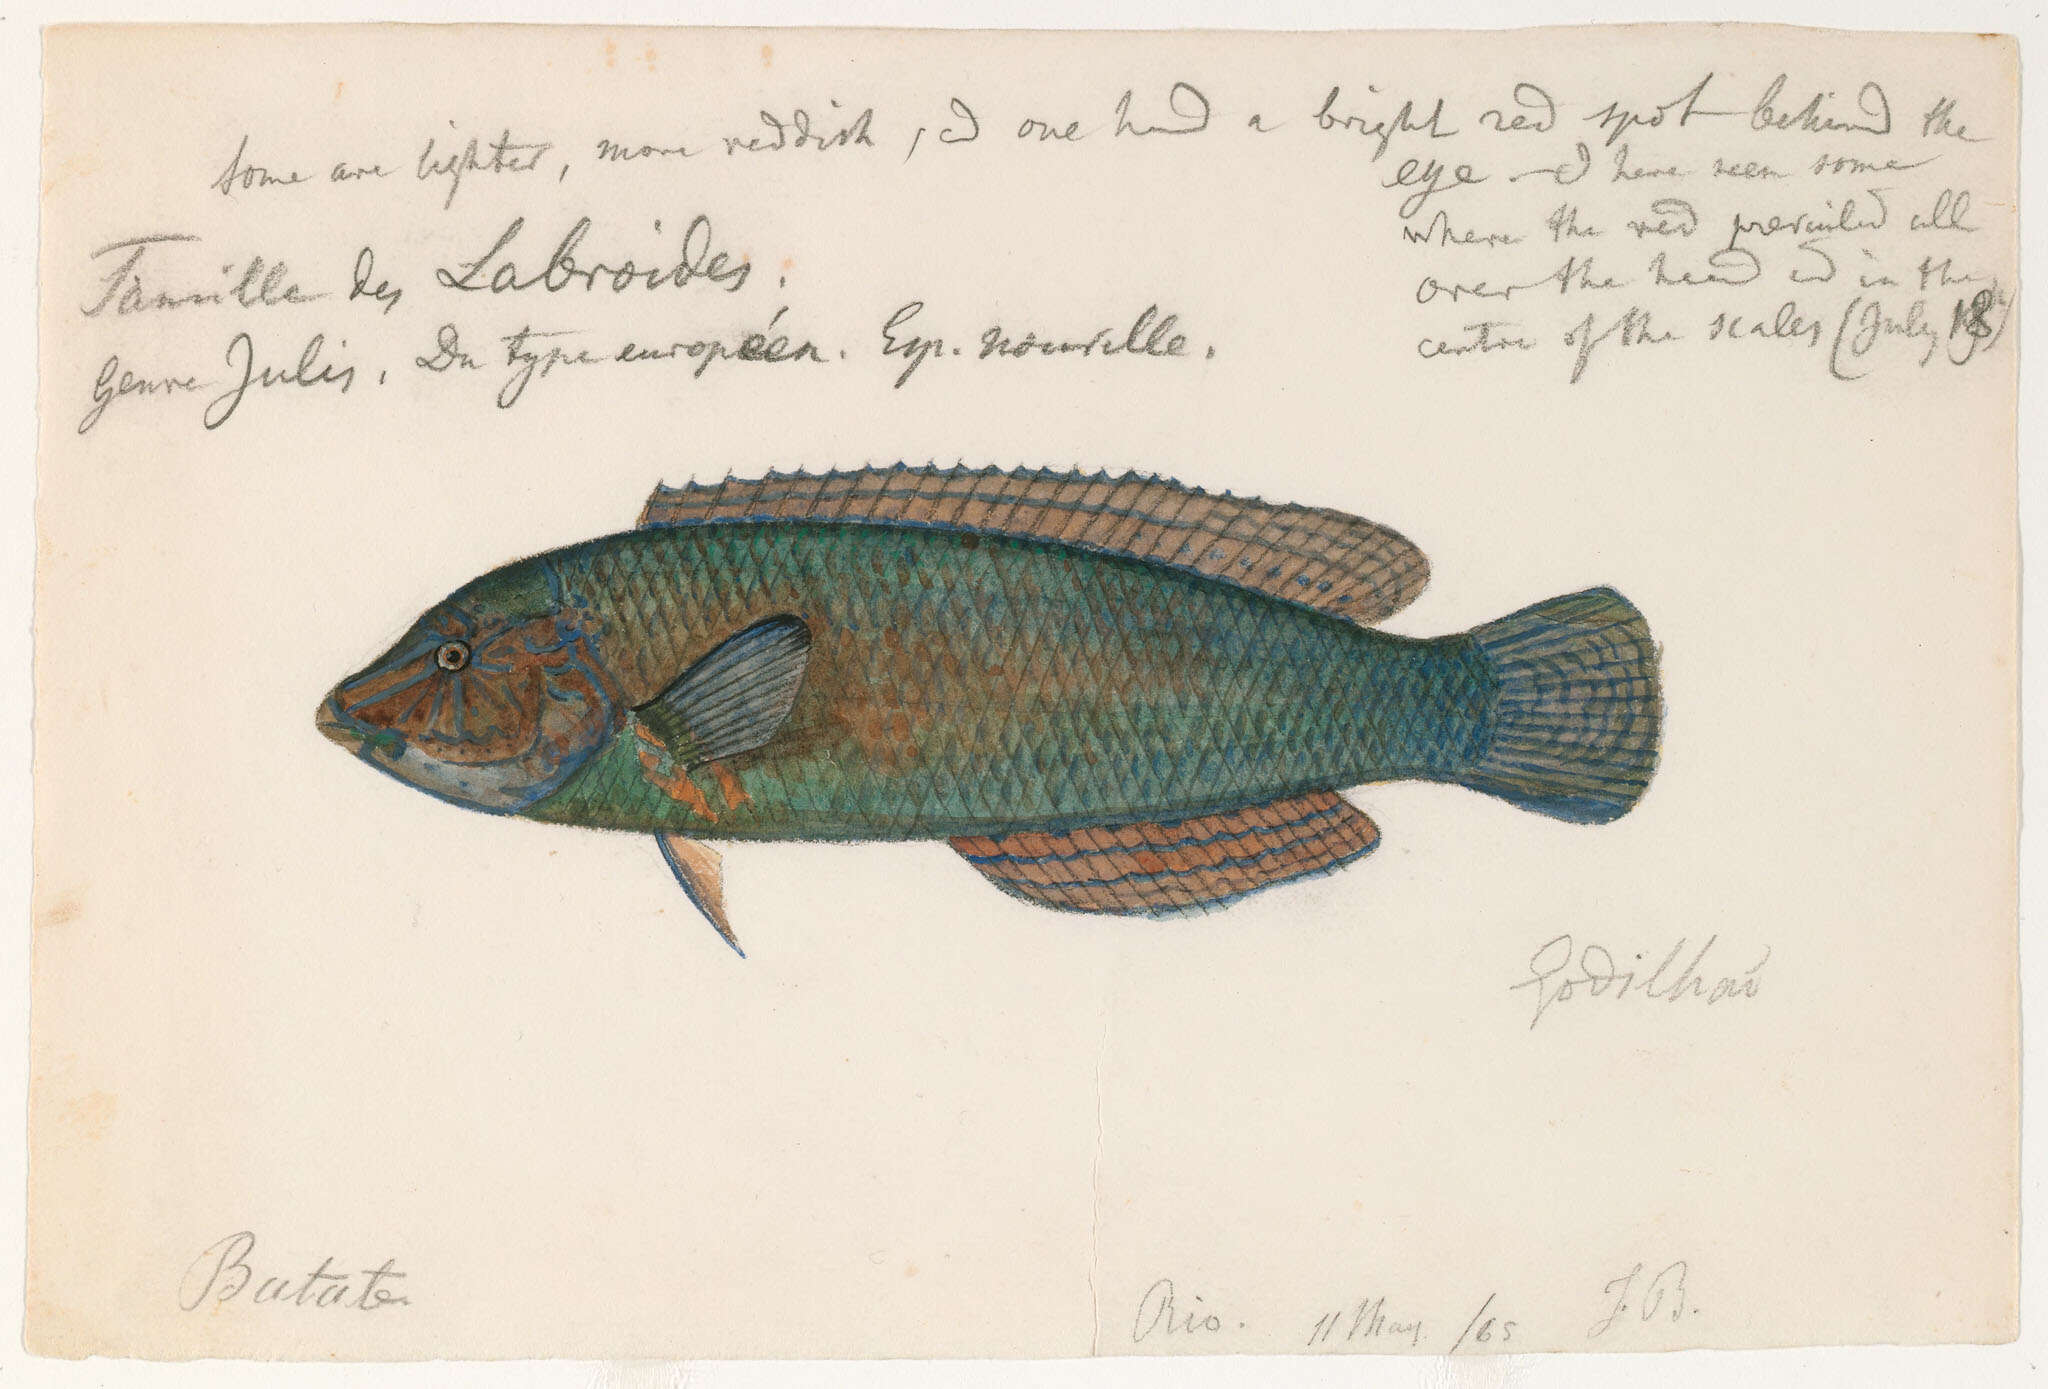 Some are lighter, more reddish, & one had a bright red spot behind the
eye. — I have seen some
where the red prevailed all
over the head & in the
centre of the scales (July
Famille des Labroides.
Genre Julis. Du type européen. Esp. nouvelle.
Godilhão
Batata
Rio. 11 May /65 J. B.